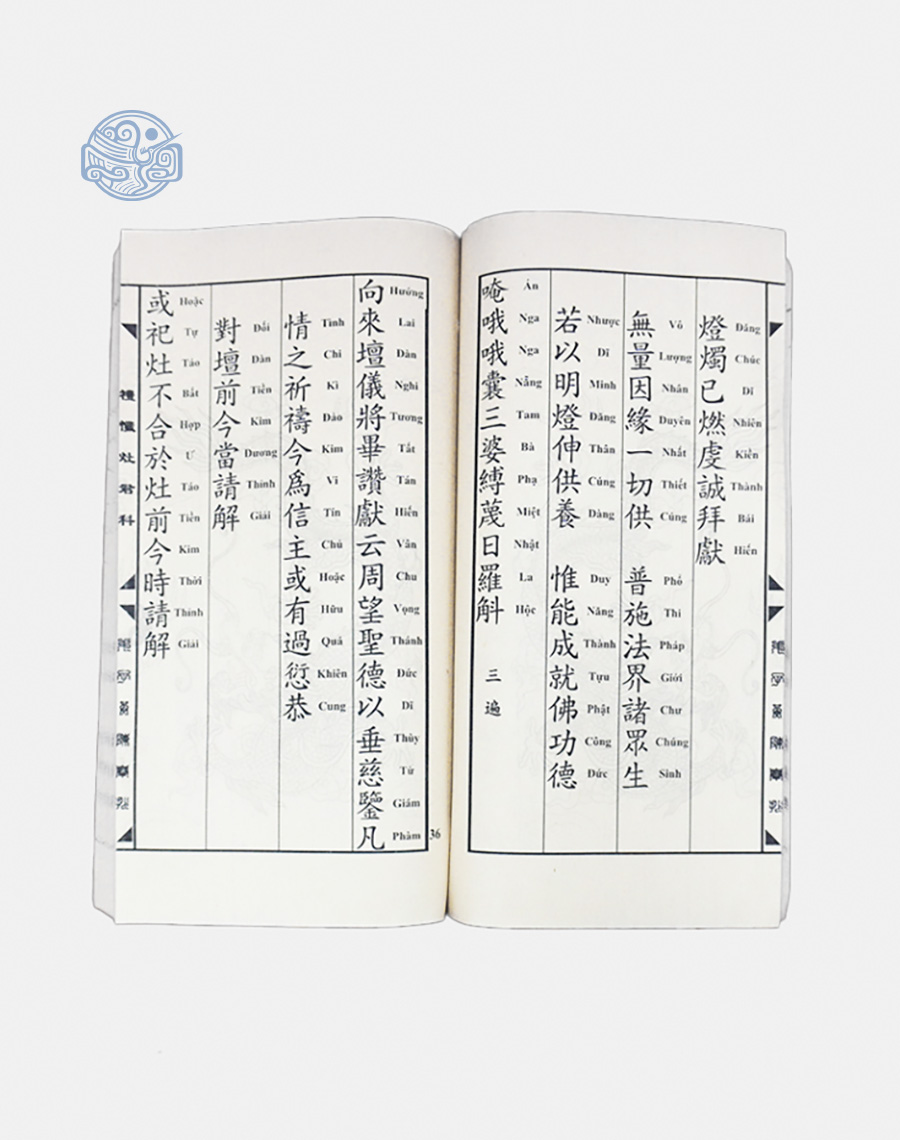 燈燭已燃虔誠拜獻
Đăng Chúc Dĩ Nhiên Kiền Thành Bái Hiến
無量因緣一切供 普施法界諸眾生
Vô Lượng Nhân Duyên Nhất Thiết Cúng Phổ Thi Pháp Giới Chư Chúng Sinh
若以明燈伸供養 惟能成就佛功德
Nhược Dĩ Minh Đăng Thân Cúng Dàng Duy Năng Thành Tựu Phật Công Đức
唵哦哦囊三婆縛蔑日羅斛 三遍
Án Nga Nga Nẵng Tam Bà Phạ Miệt Nhật La Hộc
向來壇儀將畢讚獻云周望聖德以垂慈鑒凡
Hướng Lai Đàn Nghi Tương Tất Tán Hiến Vân Chu Vọng Thánh Đức Dĩ Thùy Từ Giám Phàm
36
情之祈禱今爲信主或有過愆恭
Tình Chi Kì Đảo Kim Vi Tín Chủ Hoặc Hữu Quá Khiên Cung
對壇前今當請解
Đối Đàn Tiền Kim Đương Thỉnh Giải
或祀灶不合於灶前今時請解
Hoặc Tự Táo Bất Hợp Ư Táo Tiền Kim Thời Thỉnh Giải
禮懺灶君科